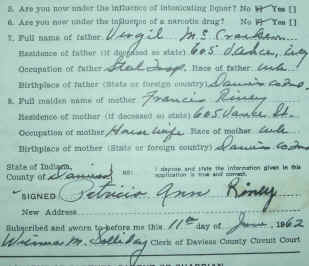 5. Are you now under the influence of intoxicating liquor? No [x] Yes [ ]
6. Are you now under the influence of a narcotic drug? No [x] Yes [ ]
7. Full name of father Virgil Mc
Residence of father (if deceased so state) 605 Vance, City
Occupation of father Steel Insp. Race of father wh.
Birthplace of father (State or foreign country) Daviess Co Ind.
8. Full maiden name of mother Francis Riney
Residence of mother (if deceased so state) 605 Vance St.
Occupation of mother House wife Race of mother wh.
Birthplace of mother (State or foreign country) Daviess Co Ind.
State of Indiana, County of Daviess ss: I depose and state the information given in this application is true and correct.
SIGNED Patricia Ann Riney
New Address
Subscribed and sworn to before me this 11th day of June, 1962
M. Clerk of Daviess County Circuit Court
OR GUARDIAN